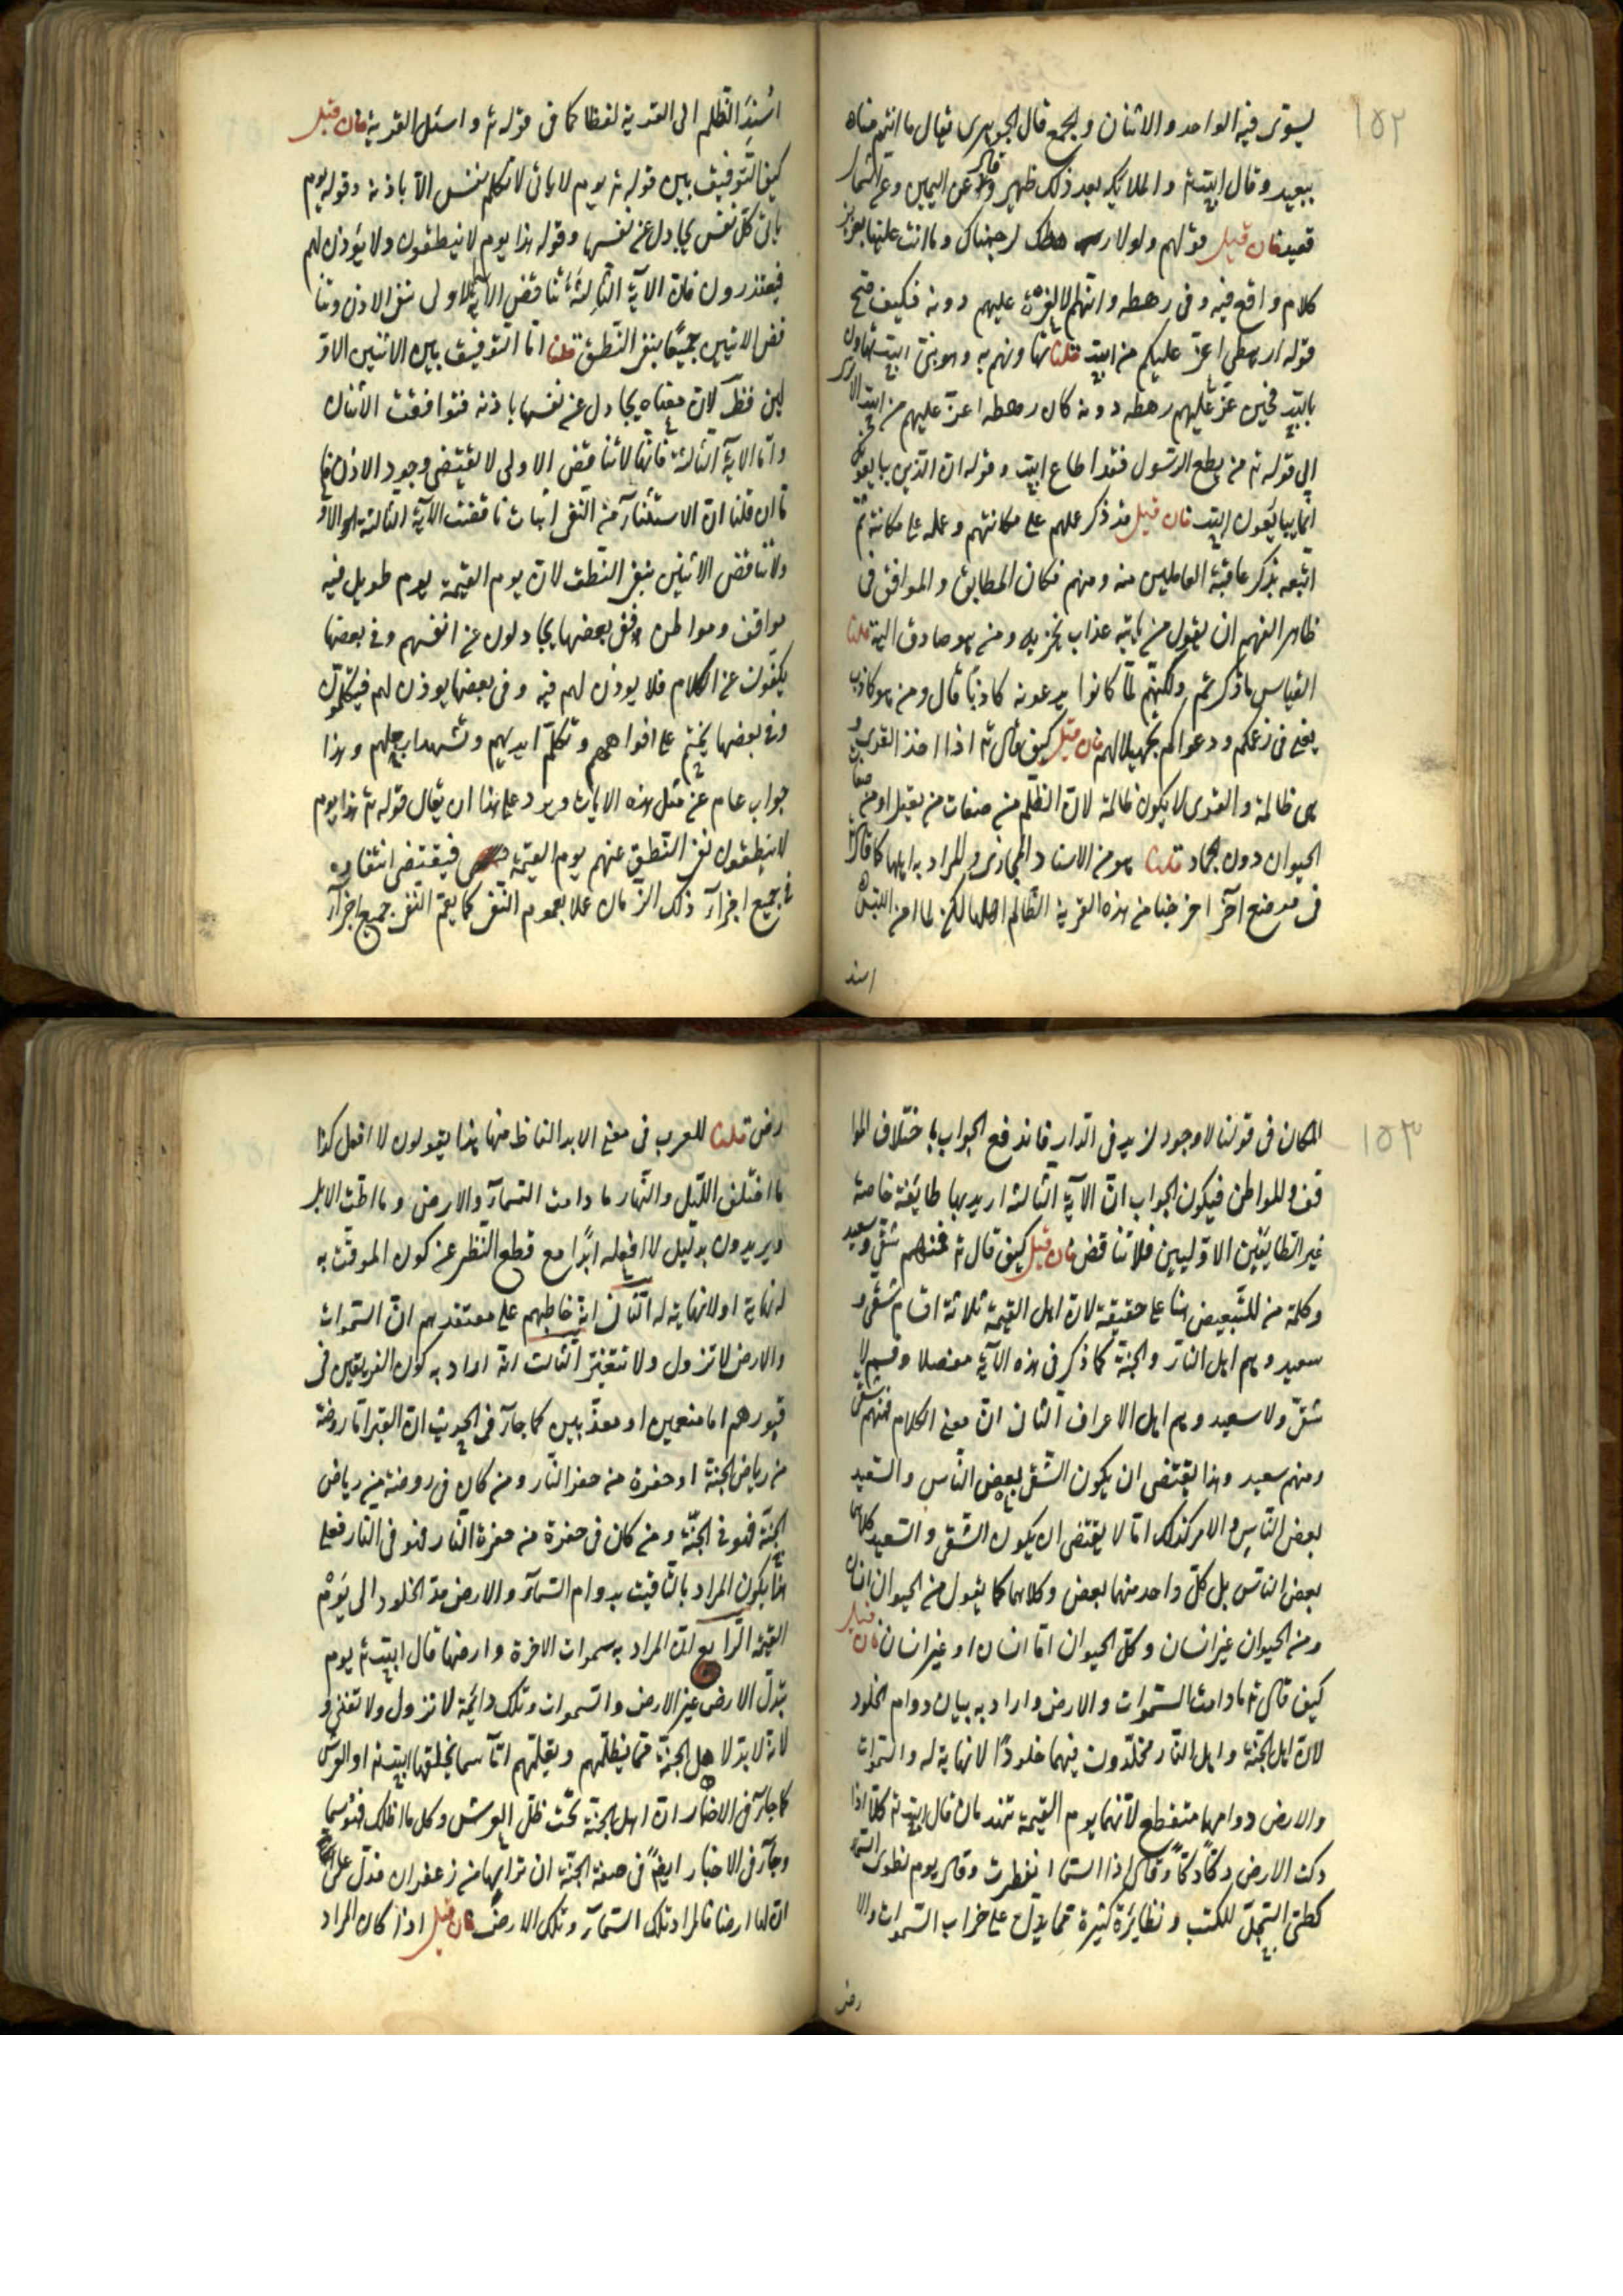 ١٥٢
يستوى فيه الواحد والاثنان والجمع قال الجوهرى يقال ما انتم مناه
ببعيد وقال الله تع والملايكة بعد ذلك ظهير وقال عن اليمين وعن الشمال
قعيد فان قيل قولهم ولولا رهطك لرجمناك وما انت علينا بعزيز
كلام واقع فيه وفى رهطه وانهم الاعزة عليهم دونه فكيف صح
قوله ارهطى اعز عليكم من الله قلنا تهاونهم به وهو نبى الله تهاون
بالله فحين عز عليهم رهطه دونه كان رهطه اعز عليهم من الله الا ترى
الى قوله تع من يطع الرسول فقد اطاع الله وقوله ان الذين يبايعونك
انما يبايعون الله فان قيل قد ذكر عملهم على مكانتهم وعمله على مكانته ثم
اتبعه بذكر عاقبة العاملين منه ومنهم فكان المطابق والموافق فى
ظاهر الفهم ان يقول من ياتيه عذاب يخزيه ومن هو صادق الية قلنا
القياس ما ذكرتم ولكنهم لما كانوا يدعونه كاذبا قال ومن هو كاذب
يعنى فى زعمكم ودعواكم تجهيلا لهم فان قيل كيف قال تع اذا اخذ القرى و
هى ظالمة والقرى لا يكون ظالمة لان الظلم من صفات من يعقل او من صفات
الحيوان دون الجماد قلنا هو من الاسناد المجازى والمراد به اهلها كما قال
فى موضع آخر اخرجنا من هذه القرية الظالم اهلها لكن لما امن اللبس
اسند
اسند الظلم الى القرية لفظا كما فى قوله تع واسئل القرية فان قيل
كيف التوفيق بين قوله تع يوم لا ياتى لا تكلم نفس الا باذنه وقوله يوم
ياتى كل نفس يجادل عن نفسها وقوله هذا يوم لا ينطقون ولا يؤذن لهم
فيعتذرون فان الآية الثالثة تناقض الآية الاولى بنفى الاذن وتنا
قض الاثنين جميعا بنفى النطق قلنا اما التوفيق بين الاثنين الاو
لين فظ لان معناه يجادل عن نفسها باذنه فتوافقت الآيتان
واما الآية الثالثة فانها لا تناقض الاولى لا يقتضى وجود الاذن فا
ما ان قلنا ان الاستثناء من النفى اثبات ناقضت الآية الثالثة الاو
ولا تناقض الاثنين بنفى النطق لان يوم القيمة يوم طويل فيه
مواقف ومواطن ففى بعضها يجادلون عن انفسهم وفى بعضها
يكفون عن الكلام فلا يوذن لهم فيه وفى بعضها يوذن لهم فيتكلمون
وفى بعضها يختم على افواههم وتكلم ايديهم وتشهد ارجلهم وهذا
جواب عام عن مثل هذه الايات ويرد على هذا ان يقال قوله تع هذا يوم
لا ينطقون نفى النطق عنهم يوم القيمة فيقتضى انتفاءه
فى جميع اجزاء ذلك الزمان عملا بعموم النفى كما يعم النفى جميع اجزاء
١٥٣
المكان فى قولنا لا وجود لزيد فى الدار فاندفع الجواب باختلاف الموا
قف والمواطن فيكون الجواب ان الآية الثالثة اريد بها طائفة خاصة
غير الطايفتين الاوليين فلا تناقض فان قيل كيف قال تع فمنهم شقى وسعيد
وكلمة من للتبعيض هنا على حقيقة لان اهل القيمة ثلاثة اقسام شقى و
سعيد وهم اهل النار والجنة كما ذكر فى هذه الآية مفصلا وقسم لا
شقى ولا سعيد وهم اهل الاعراف الثانى ان معنى الكلام فمنهم شقى
ومنهم سعيد وهذا يقتضى ان يكون الشقى بعض الناس والسعيد
بعض الناس والامر كذلك اما لا يقتضى ان يكون الشقى والسعيد كلاهما
بعض الناس بل كل واحد منهما بعض وكلاهما كما يقول من الحيوان انسان
ومن الحيوان غير انسان وكل الحيوان اما انسان او غير انسان فان قيل
كيف قال تع ما دامت السموات والارض واراد به بيان دوام الخلود
لان اهل الجنة واهل النار مخلدون فيهما خلودا لا نهاية له والسموات
والارض دوامهما منقطع لانهما يوم القيمة تنهدمان قال الله تع كلا اذا
دكت الارض دكا دكا وقال اذا السماء انفطرت وقال يوم نطوى السماء
كطى السجل للكتب ونظايره كثيرة مما يدل على خراب السموات والا
رض
رض قلنا للعرب فى معنى الابد الفاظ منها هذا يقولون لا افعل كذا
ما اختلف الليل والنهار ما دامت السماء والارض وما اطت الابل
ويريدون بذلك لا افعله ابدا مع قطع النظر عن كون الموقت به
له نهاية او لا نهاية له الثانى انه خاطبهم على معتقدهم ان السموات
والارض لا تزول ولا تتغير الثالث انه اراد به كون الفريقين فى
قبورهم اما منعمين او معذبين كما جاء فى الحديث ان القبر اما روضة
من رياض الجنة او حفرة من حفر النار ومن كان فى روضة من رياض
الجنة فهو فى الجنة ومن كان فى حفرة من حفرة النار فهو فى النار فعلى
هذا يكون المراد بالتاقيت بدوام السماء والارض مدة الخلود الى يوم
القيمة الرابع ان المراد به سموات الاخرة وارضها قال الله تع يوم
تبدل الارض غير الارض والسموات وتلك دائمة لا تزول ولا تفنى و
لانه لا بد لاهل الجنة مما يظلهم ويقلهم اما سما يخلقها الله تع او العرش
كما جاء فى الاخبار ان اهل الجنة تحت ظل العرش وكل ما اظلك فهو سما
وجاء فى الاخبار ايضا فى صفة الجنة ان ترابها من زعفران فدل على
ان لها ارضا فالمراد تلك السماء وتلك الارض فان قيل اذا كان المراد